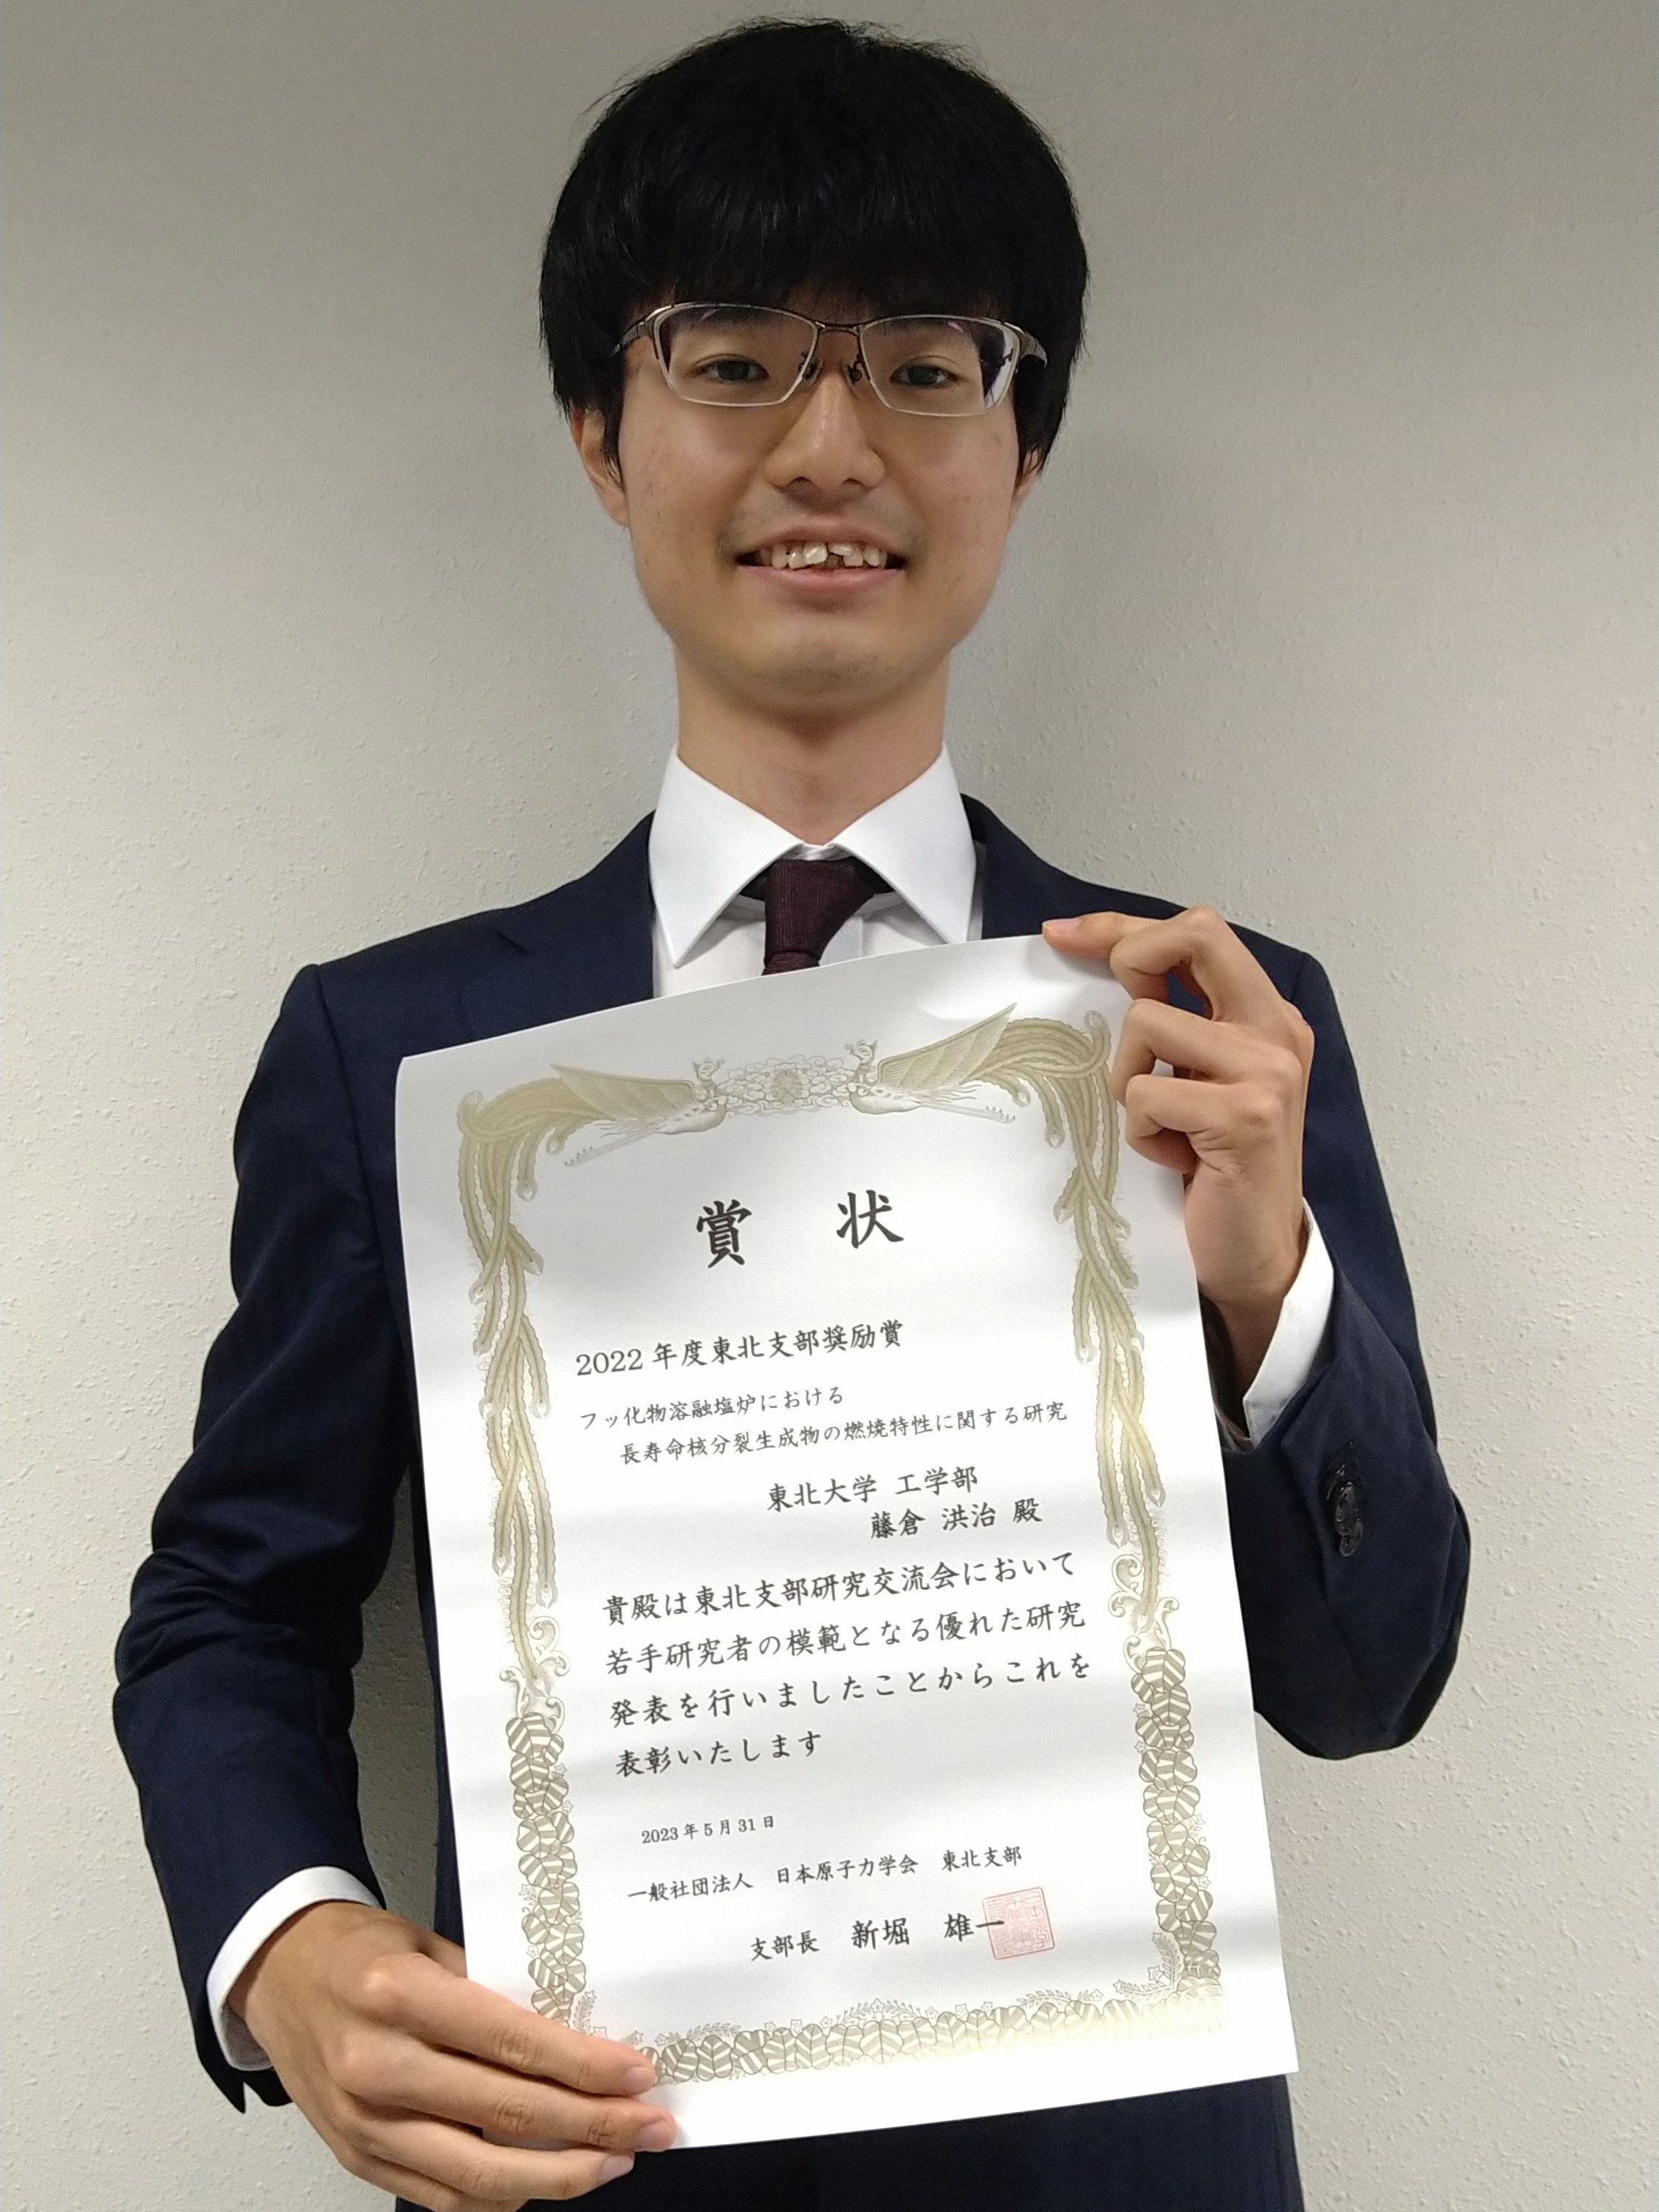 賞 状
2022 年度東北支部奨励賞
フッ化物溶融塩炉における
長寿命核分裂生成物の燃焼特性に関する研究
東北大学 工学部
藤倉 洪治 殿
貴殿は東北支部研究交流会において
若手研究者の模範となる優れた研究
発表を行いましたことからこれを
表彰いたします
2023 年 5 月 31 日
一般社団法人 日本原子力学会 東北支部
支部長 新堀 雄一